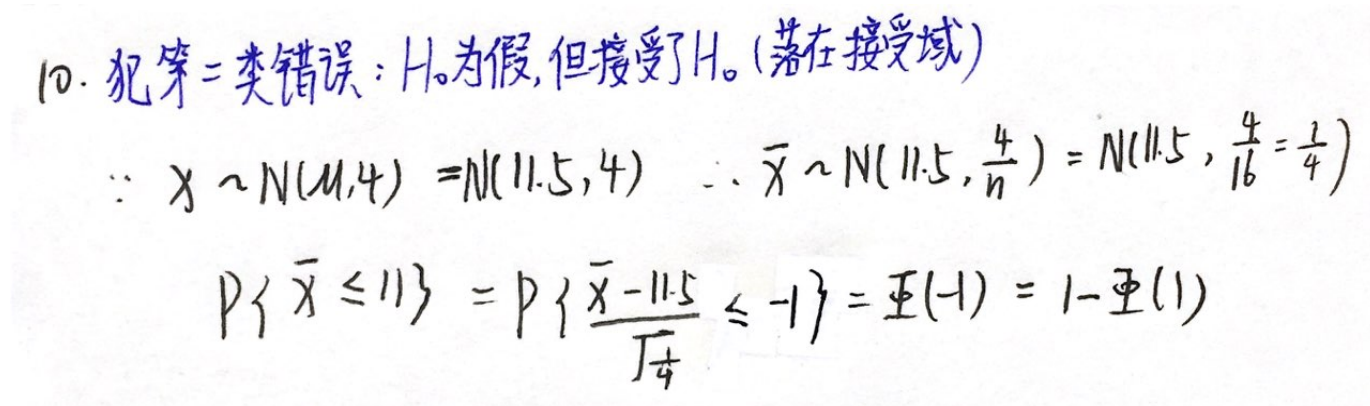 10. 犯第二类错误：H₀为假，但接受了H₀（落在接受域）
∵ X ~ N(μ,4) =N(11.5,4) ∴ X̄ ~ N(11.5, 4/n) = N(11.5, 4/16 = 1/4)
P{X̄ ≤ 11} = P{(X̄-11.5)/√(1/4) ≤ -1} = Φ(-1) = 1-Φ(1)